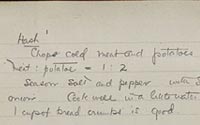 Hash
Chops cold meat and potatoes
meat : potatoe = 1 : 2
Season salt and pepper with
onion Cook well in a little water
1 cup of bread crumbs is good.